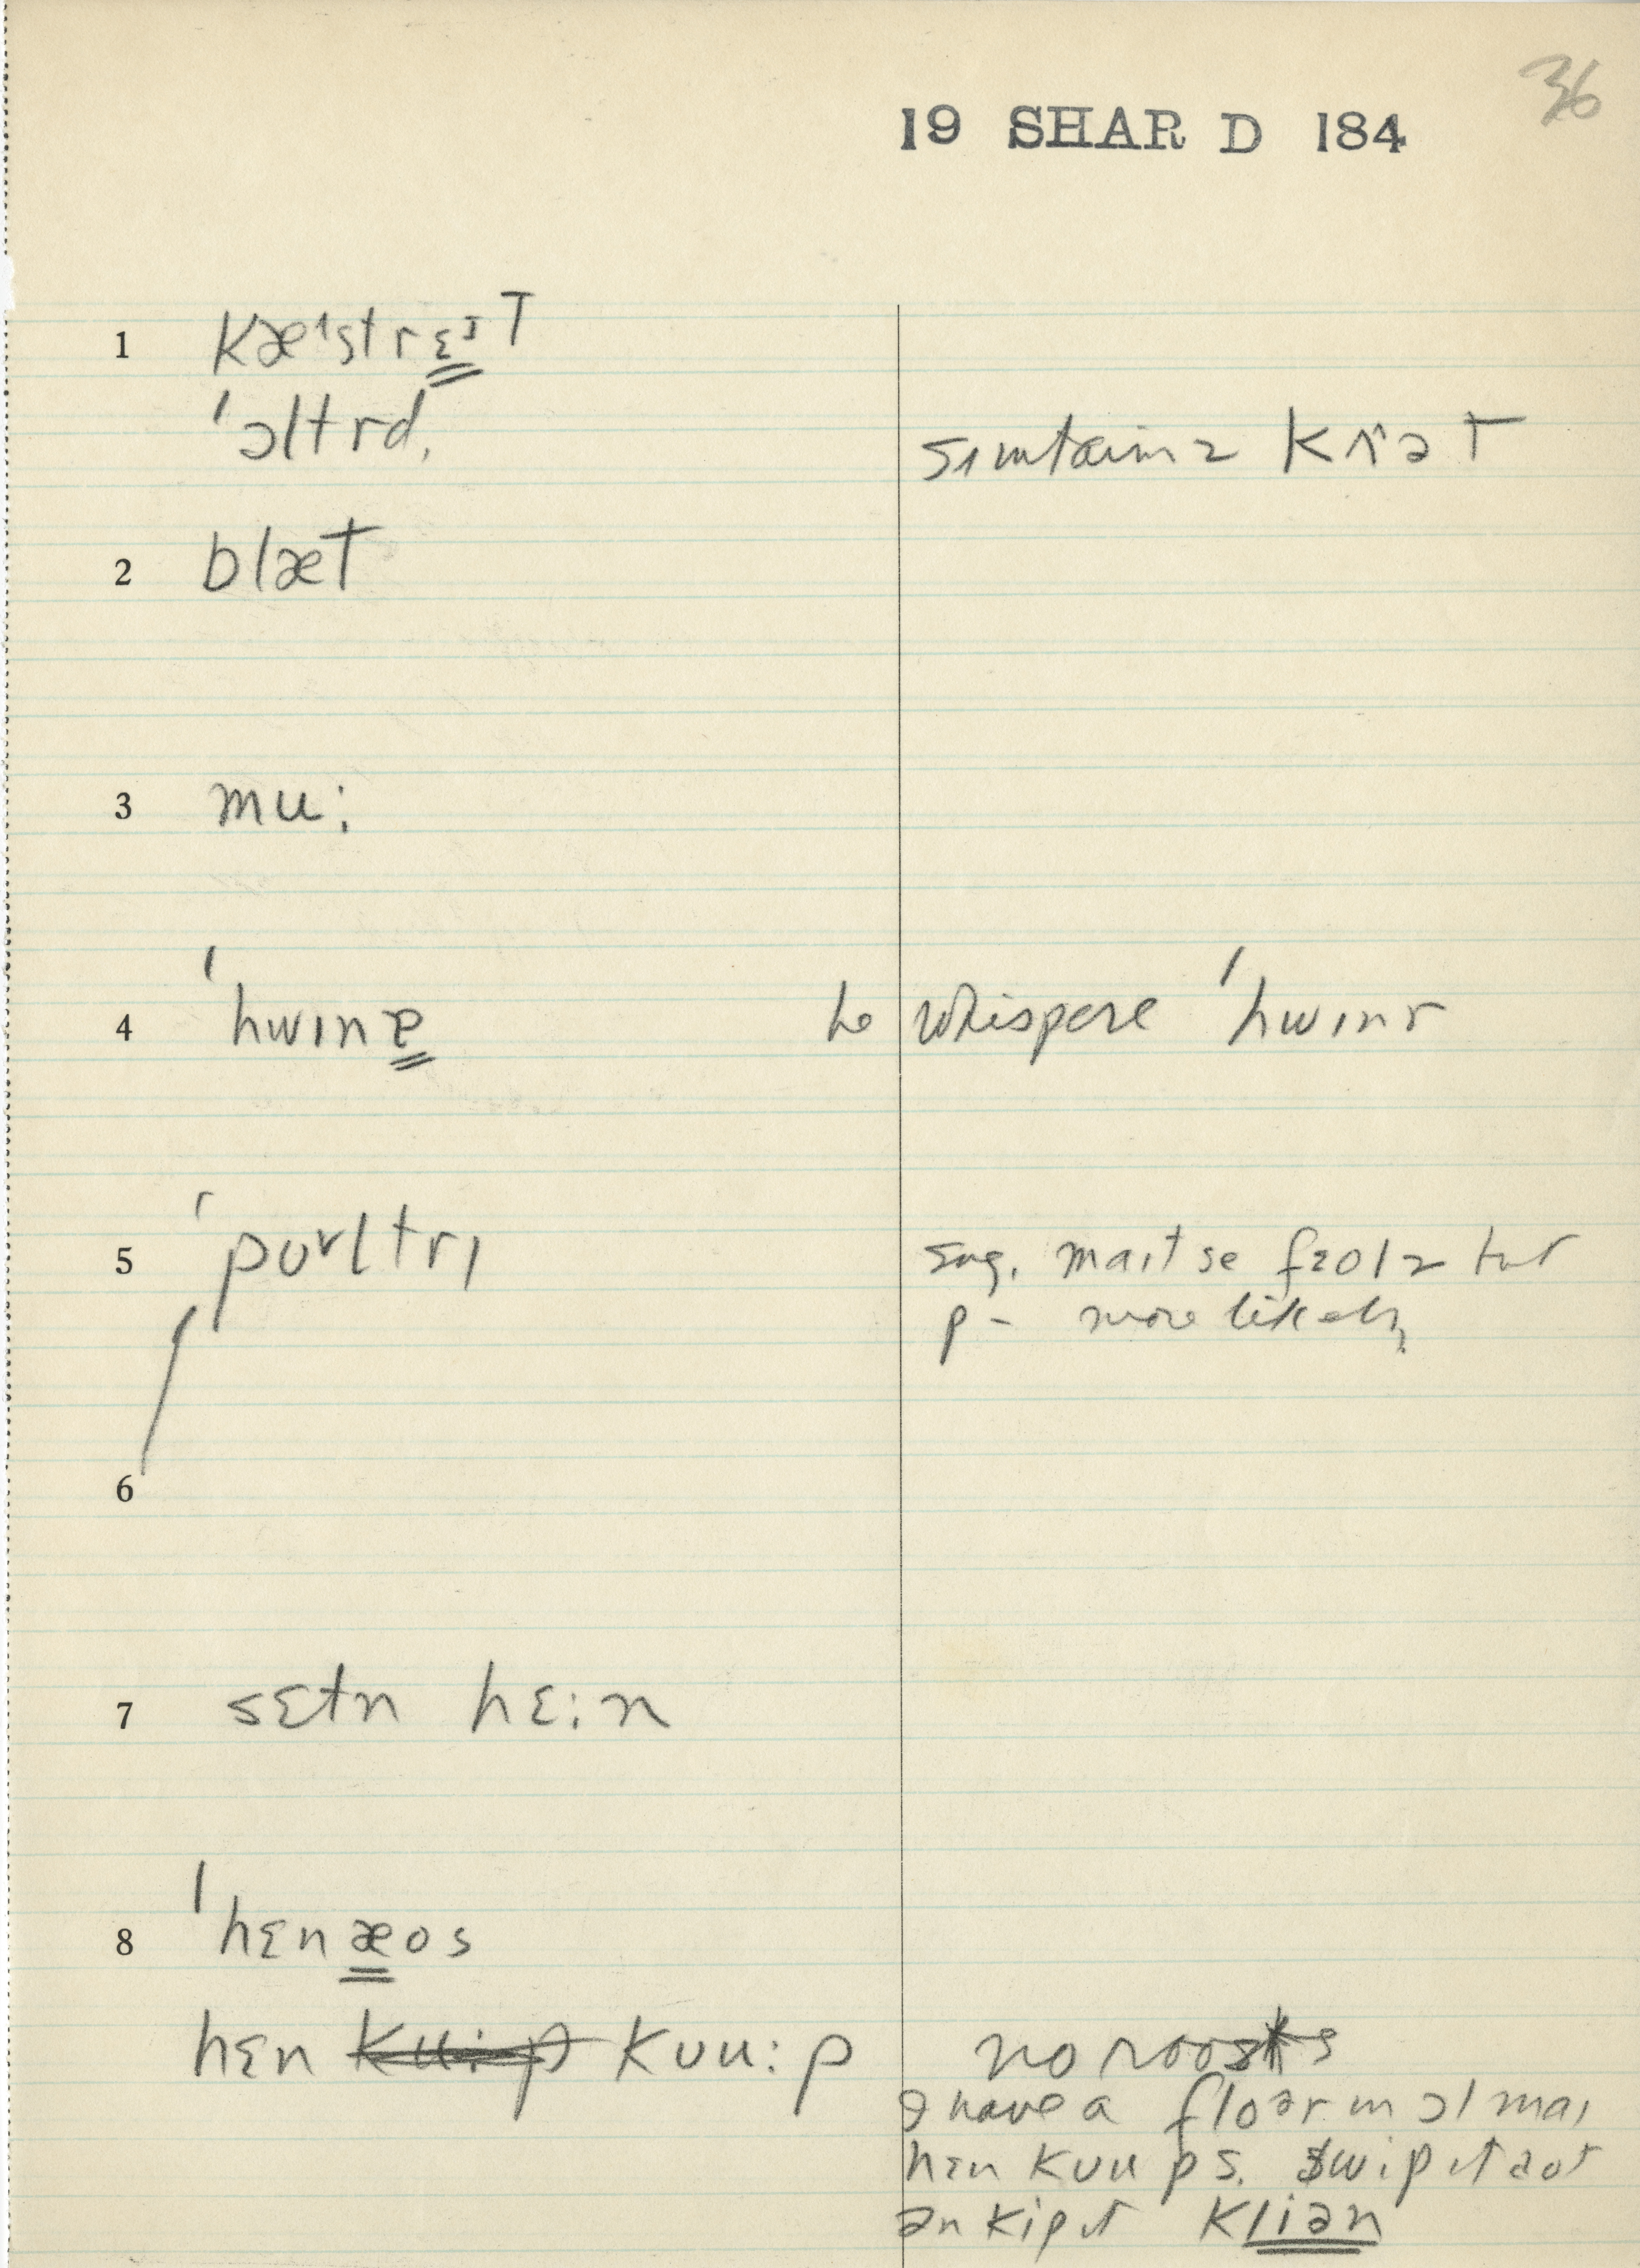 36
19 SHAR D 184
1 kæᶦstrɛᶦT
ˈɔltrd,
sɪmtaɪmz kʌ^əT
2 blæT
3 mu:
4 ˈhwɪnɐ
to whispere ˈhwɪnr
5 ˈpoᵛltrɪ
sug. maɪt se fɜolz but
p - more likely
6
7 sɛtn hɛ:n
8 ˈhɛnæos
hɛn ku:p kʊu:p
no roosts
I have a floər ɪn ɔl maɪ
hɛn kʊups. swip ɪt aot
ən kip ɪt kliən